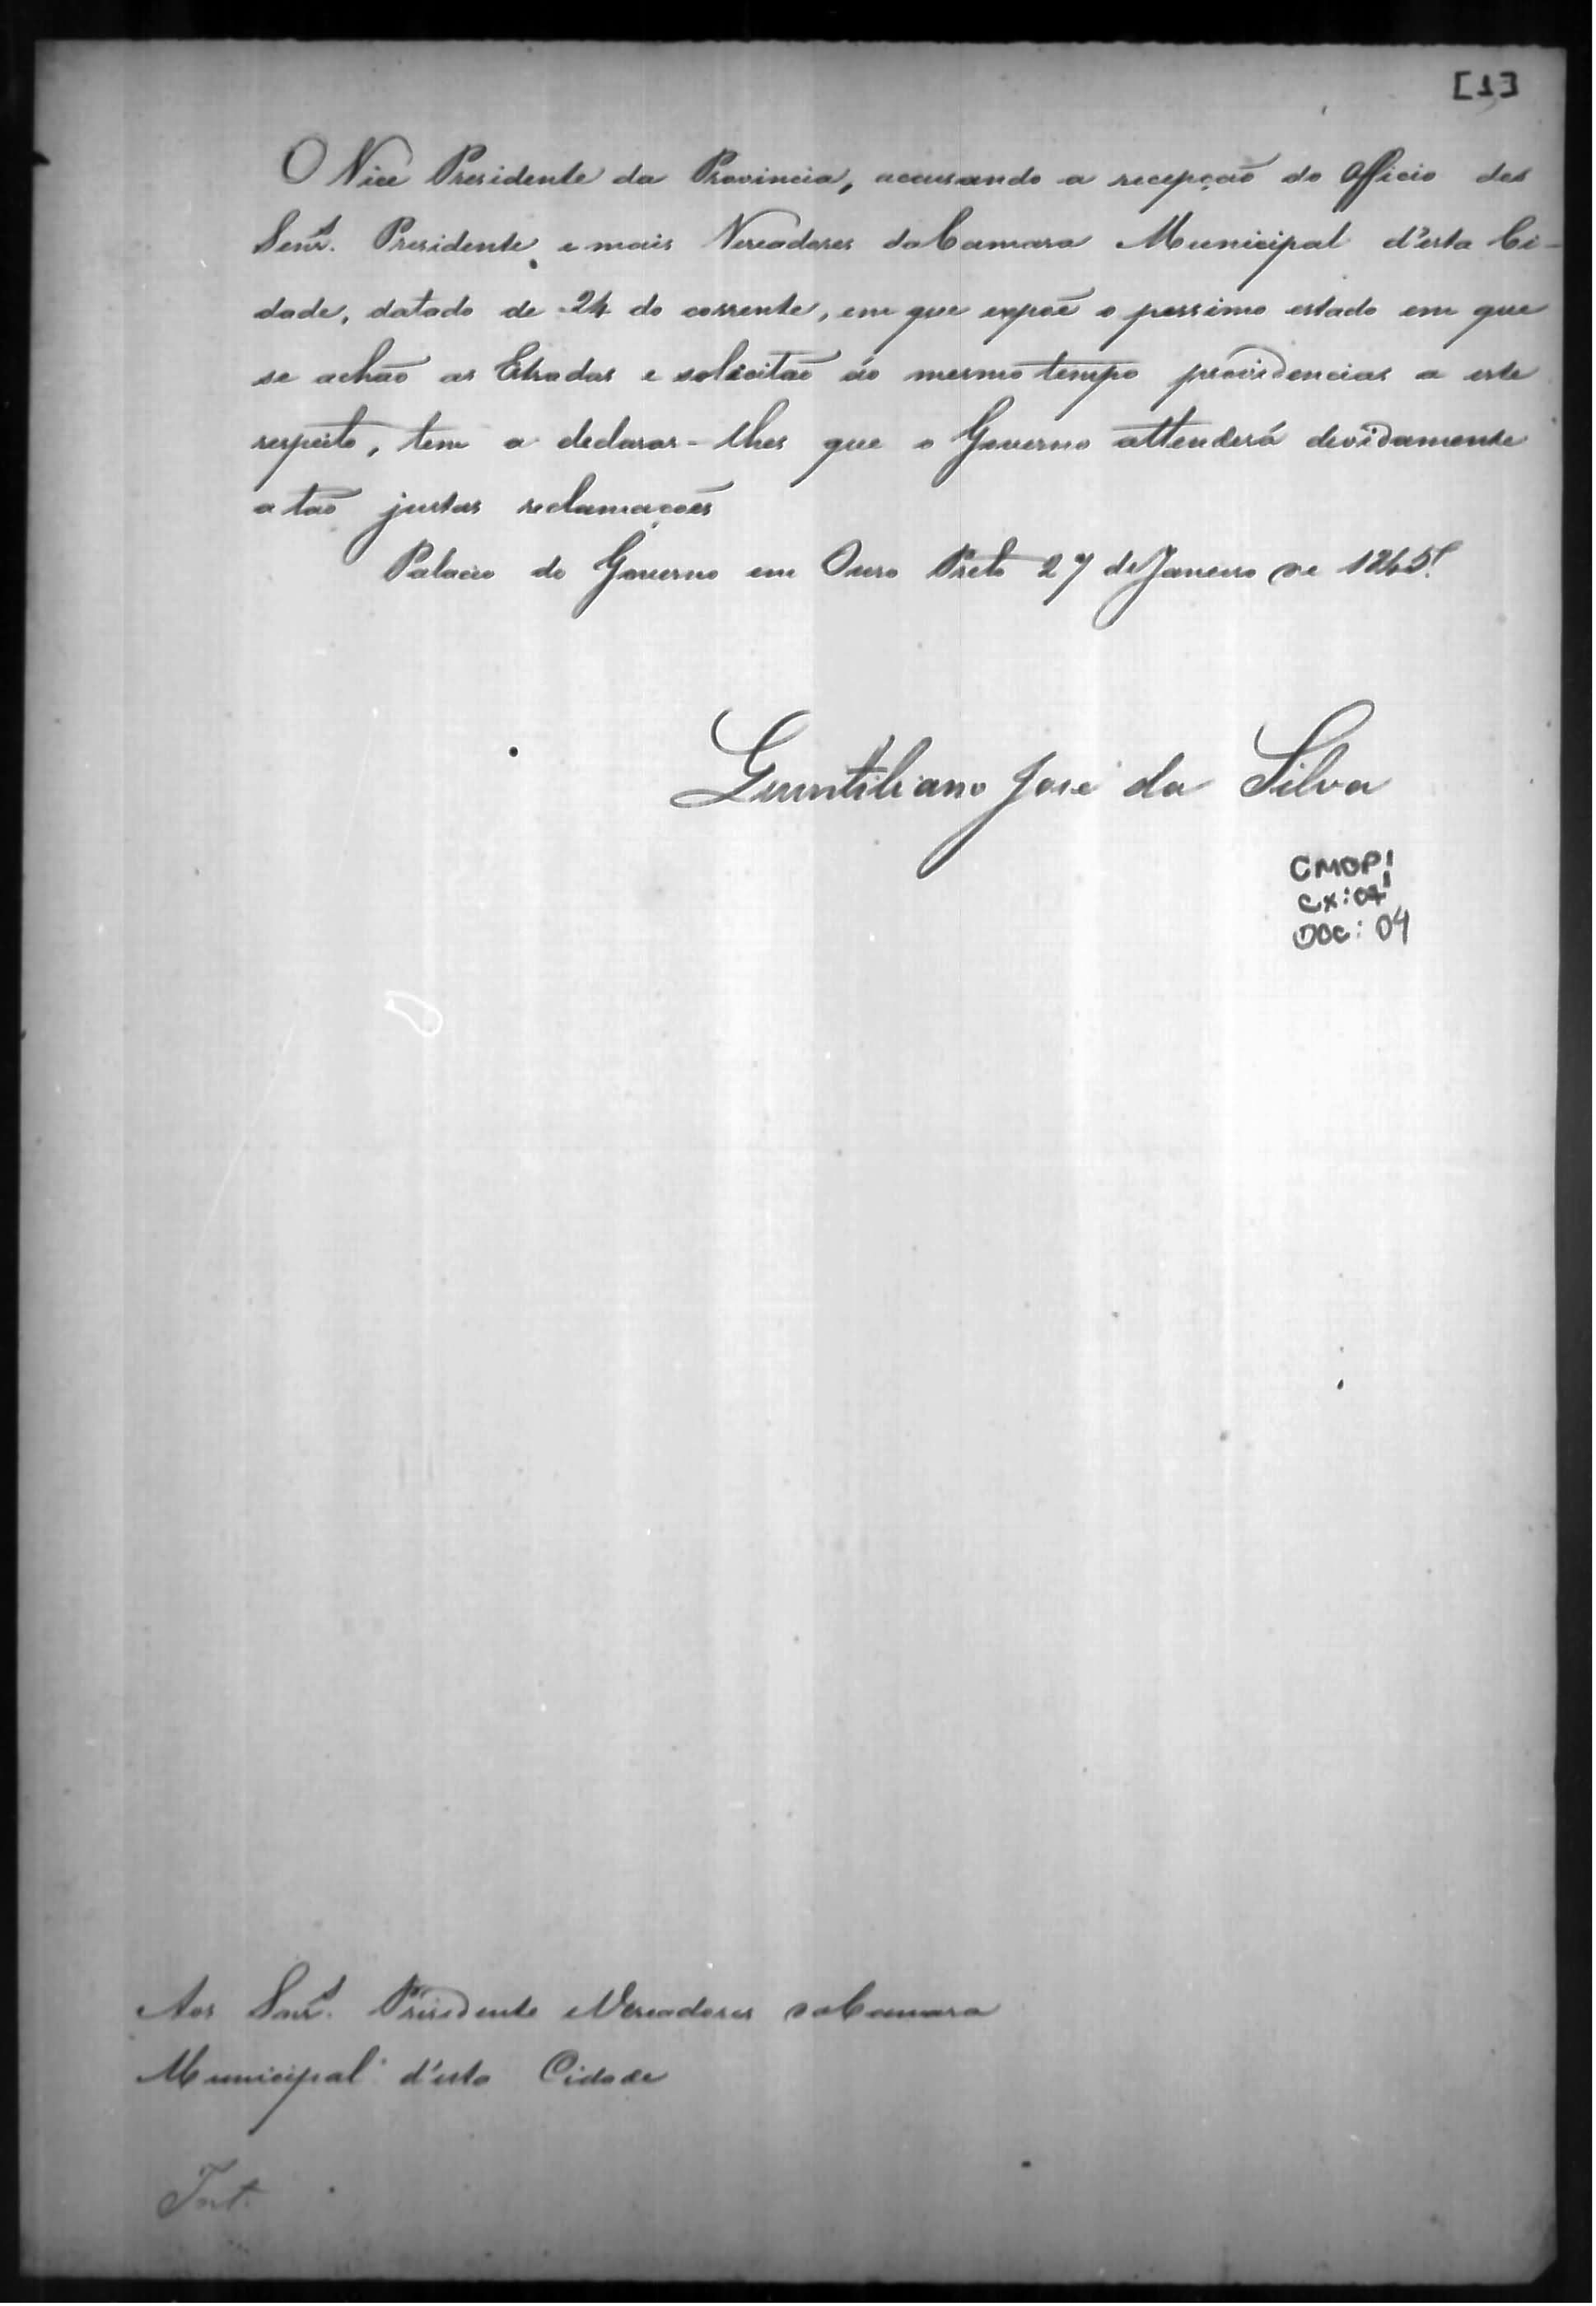 [1]
O Vice Presidente da Provincia, accusando a recepção do Officio dos
Senrs. Presidente, e mais Vereadores da Camara Municipal d'esta Ci-
dade, datado de 24 do corrente, em que expoẽ o pessimo estado em que
se achão as Estradas e solicitão áo mesmo tempo providencias a este
respeito, tem a declarar-lhes que o Governo attenderá devidamente
a tão justas reclamações
Palacio do Governo em Ouro Preto 27 de Janeiro de 1845.
Quintiliano José da Silva
CMOP
Cx: 07
DOC: 04
Aos Senrs. Presidente e Vereadores da Camara
Municipal d'esta Cidade